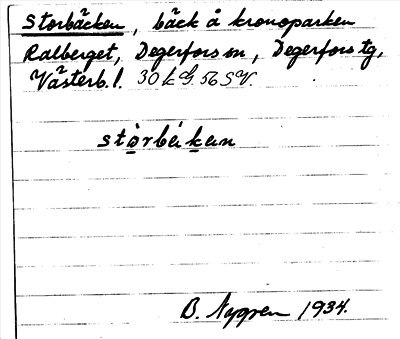 Storbäcken, bäck å kronoparken
Ralberget, Degerfors sn, Degerfors tg,
Västerb. l. 30 k G. 56 S V.
stòrbákan
B. Nygren 1934.